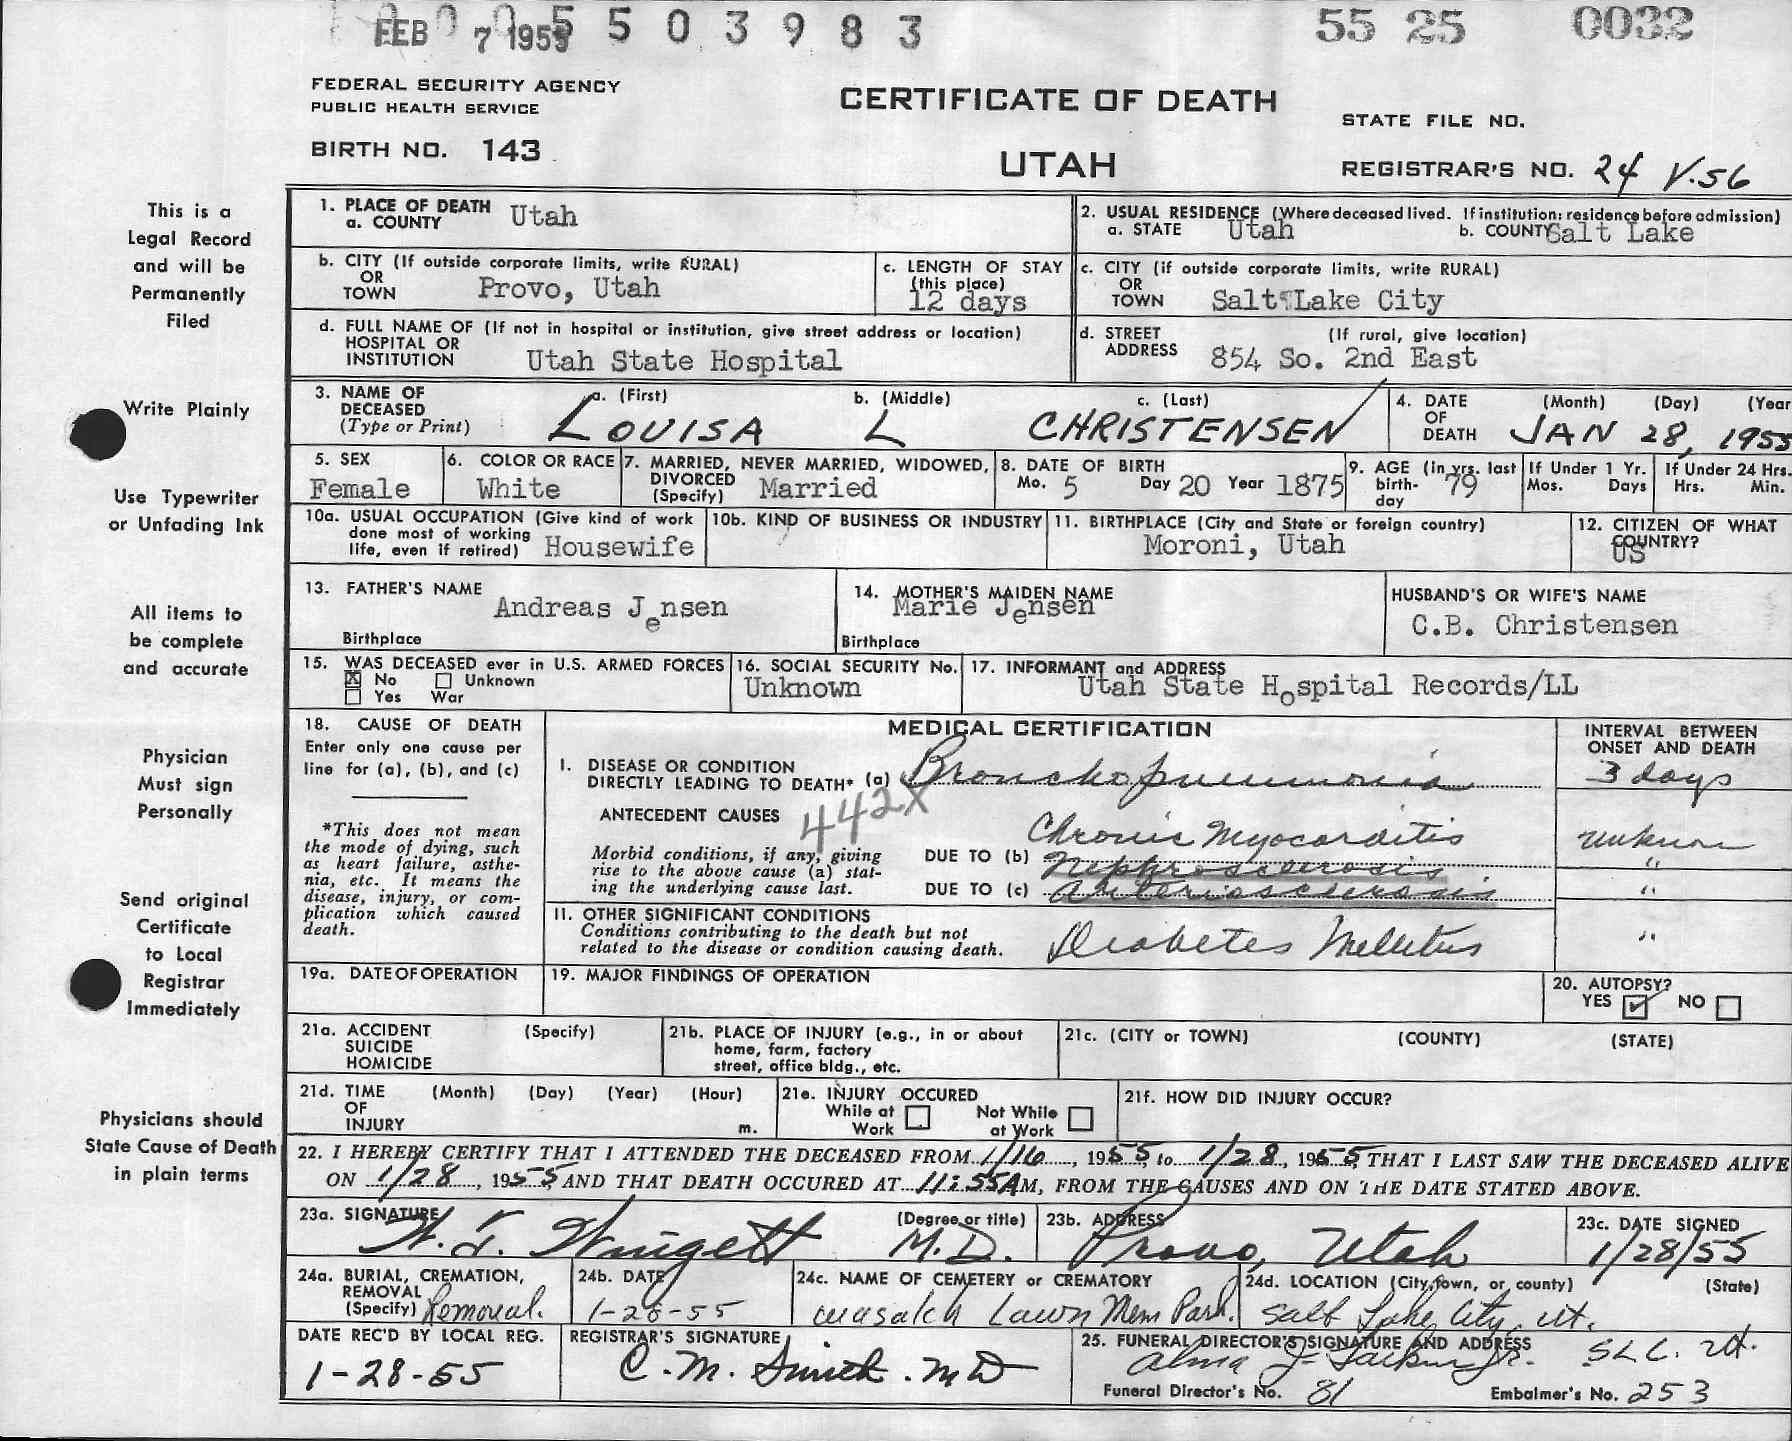 FEB 7 1955 5503983 55 25 0032
FEDERAL SECURITY AGENCY
PUBLIC HEALTH SERVICE
BIRTH NO. 143
CERTIFICATE OF DEATH
UTAH
STATE FILE NO.
REGISTRAR'S NO. 24 V.56
This is a
Legal Record
and will be
Permanently
Filed
Write Plainly
Use Typewriter
or Unfading Ink
All items to
be complete
and accurate
Physician
Must sign
Personally
Send original
Certificate
to Local
Registrar
Immediately
Physicians should
State Cause of Death
in plain terms
1. PLACE OF DEATH
a. COUNTY Utah
2. USUAL RESIDENCE (Where deceased lived. If institution: residence before admission)
a. STATE Utah b. COUNTY Salt Lake
b. CITY (If outside corporate limits, write RURAL)
OR
TOWN Provo, Utah
c. LENGTH OF STAY
(this place)
12 days
c. CITY (if outside corporate limits, write RURAL)
OR
TOWN Salt Lake City
d. FULL NAME OF (If not in hospital or institution, give street address or location)
HOSPITAL OR
INSTITUTION Utah State Hospital
d. STREET (If rural, give location)
ADDRESS 854 So. 2nd East
3. NAME OF
DECEASED
(Type or Print)
a. (First) b. (Middle) c. (Last)
LOUISA L CHRISTENSEN
4. DATE (Month) (Day) (Year
OF
DEATH JAN 28, 1955
5. SEX
Female
6. COLOR OR RACE
White
7. MARRIED, NEVER MARRIED, WIDOWED,
DIVORCED
(Specify) Married
8. DATE OF BIRTH
Mo. 5 Day 20 Year 1875
9. AGE (in yrs. last
birth-
day 79
If Under 1 Yr.
Mos. Days
If Under 24 Hrs.
Hrs. Min.
10a. USUAL OCCUPATION (Give kind of work
done most of working
life, even if retired) Housewife
10b. KIND OF BUSINESS OR INDUSTRY
11. BIRTHPLACE (City and State or foreign country)
Moroni, Utah
12. CITIZEN OF WHAT
COUNTRY?
US
13. FATHER'S NAME
Andreas Jensen
Birthplace
14. MOTHER'S MAIDEN NAME
Marie Jensen
Birthplace
HUSBAND'S OR WIFE'S NAME
C.B. Christensen
15. WAS DECEASED ever in U.S. ARMED FORCES
☒ No ☐ Unknown
☐ Yes War
16. SOCIAL SECURITY No.
Unknown
17. INFORMANT and ADDRESS
Utah State Hospital Records/LL
18. CAUSE OF DEATH
Enter only one cause per
line for (a), (b), and (c)
*This does not mean
the mode of dying, such
as heart failure, asthe-
nia, etc. It means the
disease, injury, or com-
plication which caused
death.
MEDICAL CERTIFICATION
INTERVAL BETWEEN
ONSET AND DEATH
I. DISEASE OR CONDITION
DIRECTLY LEADING TO DEATH* (a) Bronchopneumonia 3 days
ANTECEDENT CAUSES 442X
Morbid conditions, if any, giving
rise to the above cause (a) stat-
ing the underlying cause last.
Chronic Myocarditis
DUE TO (b) Nephrosclerosis "
DUE TO (c) Arteriosclerosis "
II. OTHER SIGNIFICANT CONDITIONS
Conditions contributing to the death but not
related to the disease or condition causing death.
Diabetes Mellitus "
19a. DATE OF OPERATION
19. MAJOR FINDINGS OF OPERATION
20. AUTOPSY?
YES ☑ NO ☐
21a. ACCIDENT (Specify)
SUICIDE
HOMICIDE
21b. PLACE OF INJURY (e.g., in or about
home, farm, factory
street, office bldg., etc.
21c. (CITY or TOWN) (COUNTY) (STATE)
21d. TIME (Month) (Day) (Year) (Hour)
OF
INJURY m.
21e. INJURY OCCURED
While at Work ☐ Not While at Work ☐
21f. HOW DID INJURY OCCUR?
22. I HEREBY CERTIFY THAT I ATTENDED THE DECEASED FROM 1/16, 1955, to 1/28, 1955, THAT I LAST SAW THE DECEASED ALIVE
ON 1/28, 1955, AND THAT DEATH OCCURED AT 11:55AM, FROM THE CAUSES AND ON THE DATE STATED ABOVE.
23a. SIGNATURE (Degree or title)
M.D.
23b. ADDRESS
Provo, Utah
23c. DATE SIGNED
1/28/55
24a. BURIAL, CREMATION,
REMOVAL
(Specify) Removal.
24b. DATE
1-28-55
24c. NAME OF CEMETERY or CREMATORY
Wasatch Lawn Mem Park.
24d. LOCATION (City, town, or county) (State)
Salt Lake City, Ut.
DATE REC'D BY LOCAL REG.
1-28-55
REGISTRAR'S SIGNATURE
C. M. Smith. MD
25. FUNERAL DIRECTOR'S SIGNATURE AND ADDRESS
Alma J. Larkin Jr. SLC. Ut.
Funeral Director's No. 81 Embalmer's No. 253